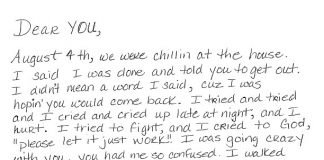 Dear YOU,
August 4th, we were chillin at the house.
I said I was done and told you to get out.
I didn't mean a word I said, cuz I was
hopin' you would come back. I tried and tried
and I cried and cried up late at night, and I
hurt. I tried to fight, and I cried to God,
"please let it just work!" I was going crazy
with you, you had me so confused. I walked